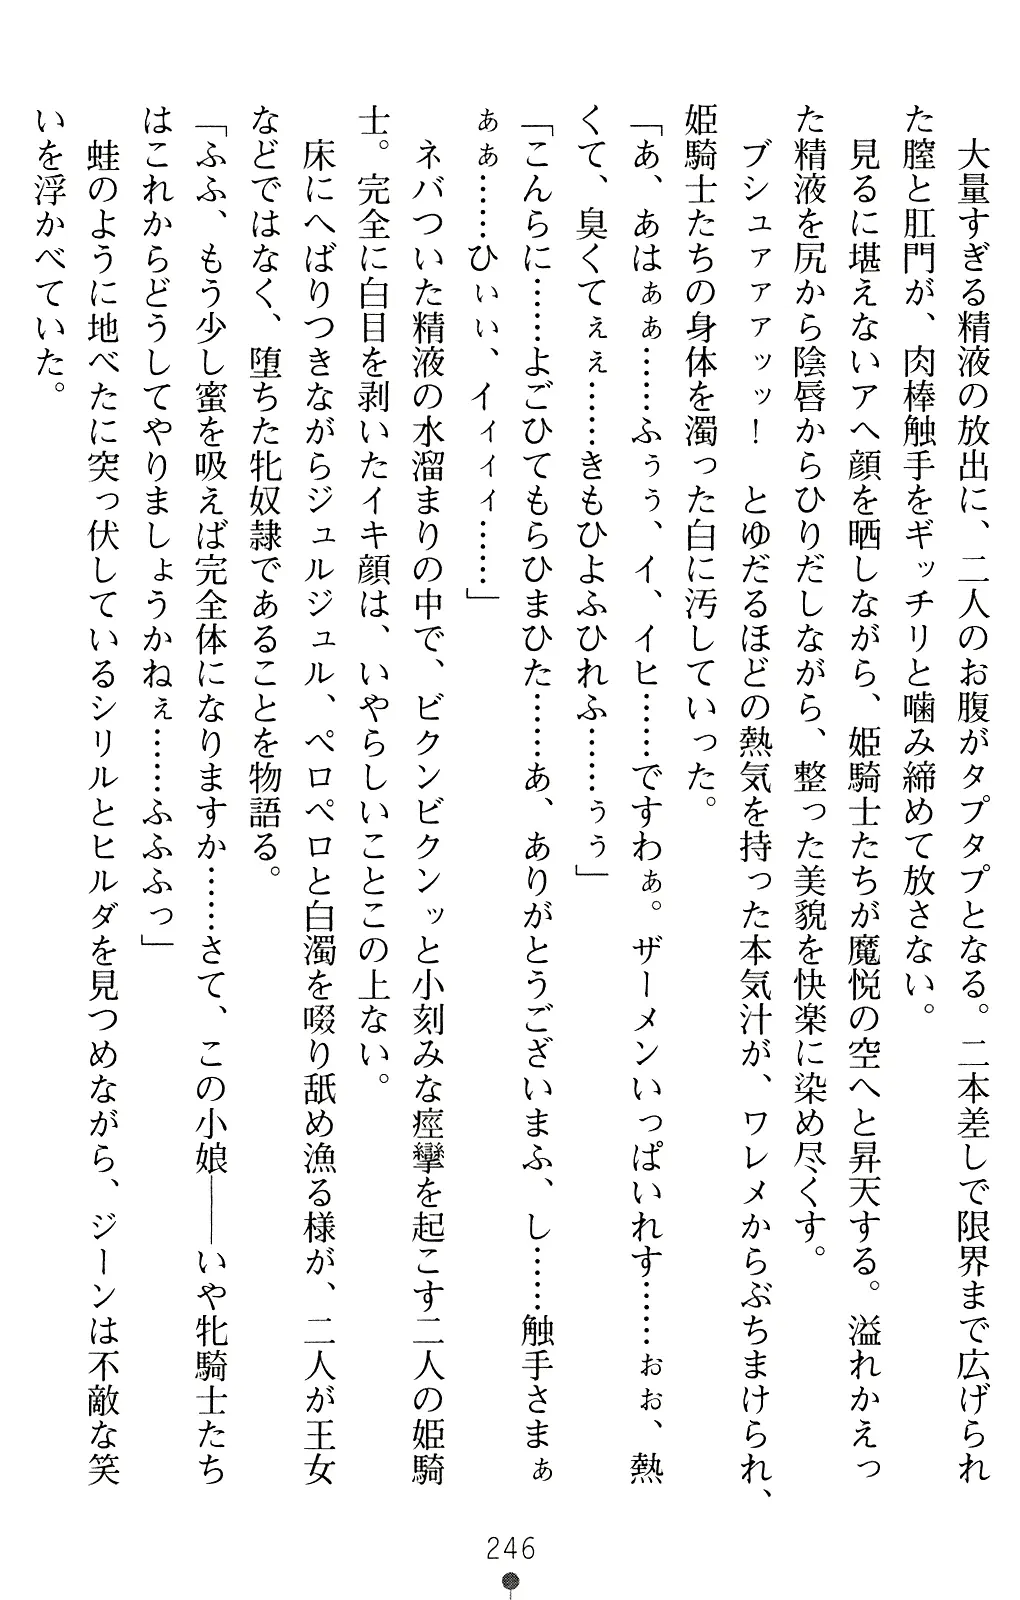 大量すぎる精液の放出に、二人のお腹がタプタプとなる。二本差しで限界まで広げられ
た膣と肛門が、肉棒触手をギッチリと噛み締めて放さない。
見るに堪えないアヘ顔を晒しながら、姫騎士たちが魔悦の空へと昇天する。溢れかえっ
た精液を尻から陰唇からひりだしながら、整った美貌を快楽に染め尽くす。
ブシュァァァッッ！　とゆだるほどの熱気を持った本気汁が、ワレメからぶちまけられ、
姫騎士たちの身体を濁った白に汚していった。
「あ、あはぁぁ……ふぅぅ、イ、イヒ……ですわぁ。ザーメンいっぱいれす……ぉぉ、熱
くて、臭くてぇぇ……きもひよふひれふ……ぅぅ」
「こんらに……よごひてもらひまひた……あ、ありがとうございまふ、し……触手さまぁ
ぁぁ……ひぃぃ、イィィィ……」
ネバついた精液の水溜まりの中で、ビクンビクンッと小刻みな痙攣を起こす二人の姫騎
士。完全に白目を剥いたイキ顔は、いやらしいことこの上ない。
床にへばりつきながらジュルジュル、ペロペロと白濁を啜り舐め漁る様が、二人が王女
などではなく、堕ちた牝奴隷であることを物語る。
「ふふ、もう少し蜜を吸えば完全体になりますか……さて、この小娘――いや牝騎士たち
はこれからどうしてやりましょうかねぇ……ふふふっ」
蛙のように地べたに突っ伏しているシリルとヒルダを見つめながら、ジーンは不敵な笑
いを浮かべていた。
246